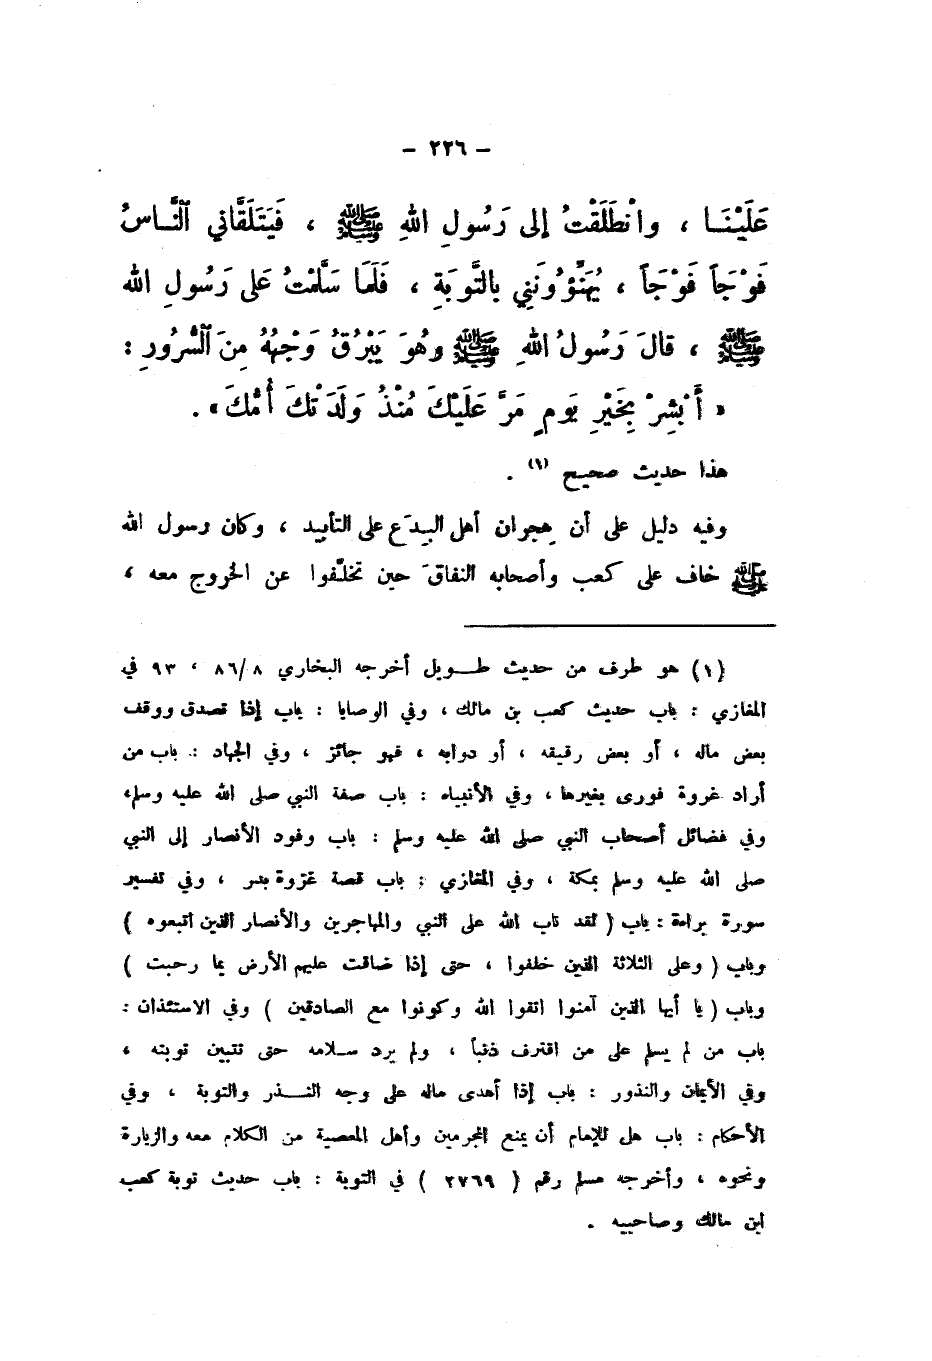 – ٢٢٦ –
عَلَيْنَا ، وانْطَلَقْتُ إلى رَسُولِ اللهِ ﷺ ، فَيَتَلَقَّاني النَّاسُ
فَوْجَاً فَوْجَاً ، يُهَنِّؤُونَنِي بالتَّوبَةِ ، فَلَمَا سَلَّمْتُ على رَسُولِ الله
ﷺ ، قالَ رَسُولُ اللهِ ﷺ وهُوَ يَبْرُقُ وَجْهُهُ مِنَ السُّرُورِ :
« أَبْشِرْ بِخَيْرِ يَومٍ مَرَّ عَلَيْكَ مُنْذُ وَلَدَتْكَ أُمُّكَ » .
هذا حديث صحيح (١) .
وفيه دليل على أن هِجران أهل البِدَع على التأبيد ، وكان رسول الله
ﷺ خاف على كعب وأصحابه النفاقَ حين تخلّفوا عن الخروج معه ،
(١) هو طرف من حديث طويل أخرجه البخاري ٨/٨٦ ، ٩٣ في
المغازي : باب حديث كعب بن مالك ، وفي الوصايا : باب إذا تصدق ووقف
بعض ماله ، أو بعض رقيقه ، أو دوابه ، فهو جائز ، وفي الجهاد : باب من
أراد غزوة فورى بغيرها ، وفي الأنبياء : باب صفة النبي صلى الله عليه وسلم،
وفي فضائل أصحاب النبي صلى الله عليه وسلم : باب وفود الأنصار إلى النبي
صلى الله عليه وسلم بمكة ، وفي المغازي : باب قصة غزوة بدر ، وفي تفسير
سورة براءة : باب ( لقد تاب الله على النبي والمهاجرين والأنصار الذين اتبعوه )
وباب ( وعلى الثلاثة الذين خلفوا ، حتى إذا ضاقت عليهم الأرض بما رحبت )
وباب ( يا أيها الذين آمنوا اتقوا الله وكونوا مع الصادقين ) وفي الاستئذان :
باب من لم يسلم على من اقترف ذنباً ، ولم يرد سلامه حتى تتبين توبته ،
وفي الأيمان والنذور : باب إذا أهدى ماله على وجه النذر والتوبة ، وفي
الأحكام : باب هل للإمام أن يمنع المجرمين وأهل المعصية من الكلام معه والزيارة
ونحوه ، وأخرجه مسلم رقم ( ٢٧٦٩ ) في التوبة : باب حديث توبة كعب
ابن مالك وصاحبيه .